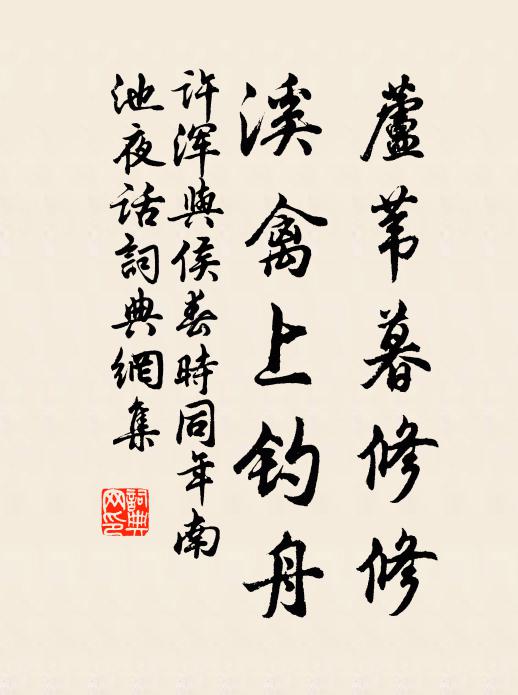 蘆葦暮修修
溪禽上釣舟
許渾與侯春時同年南
池夜話詞典網集
詞典網印